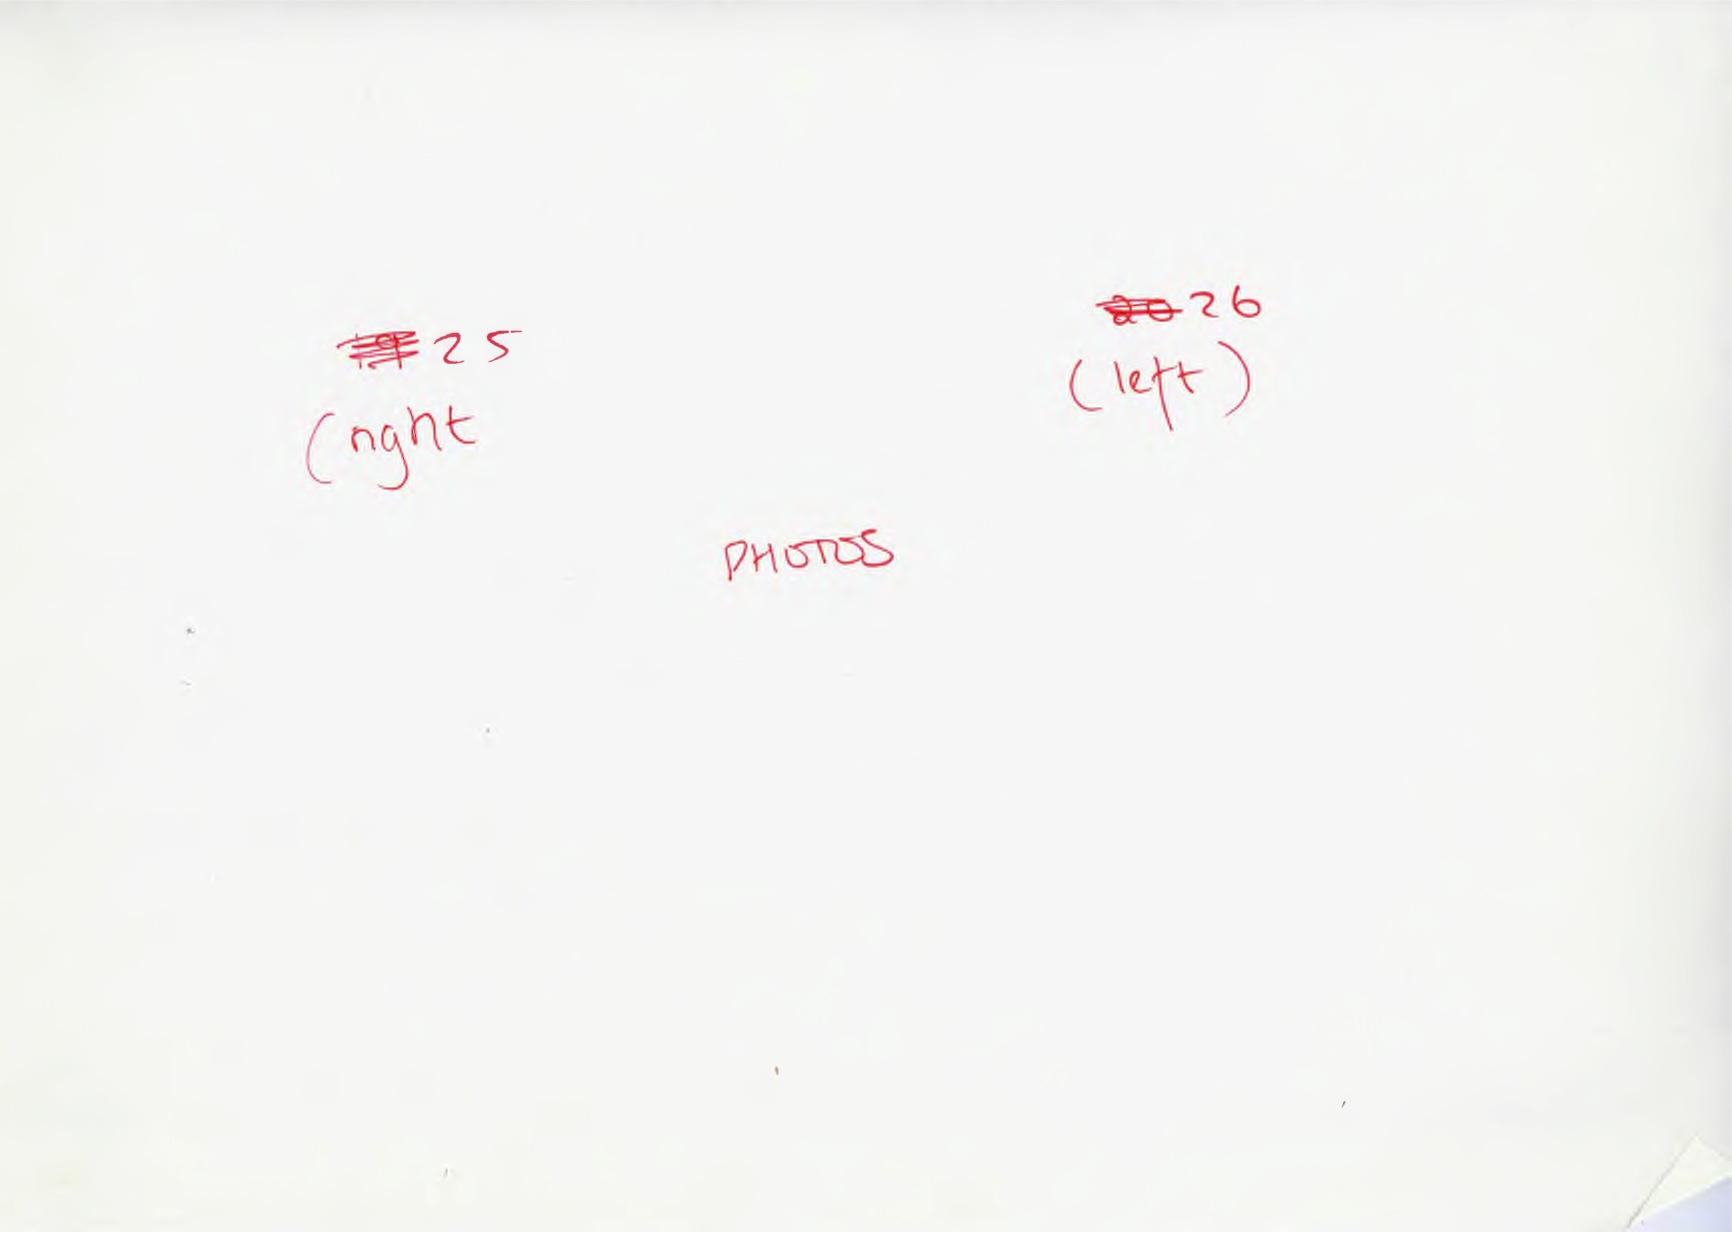 19 25
(right
20 26
(left)
PHOTOS